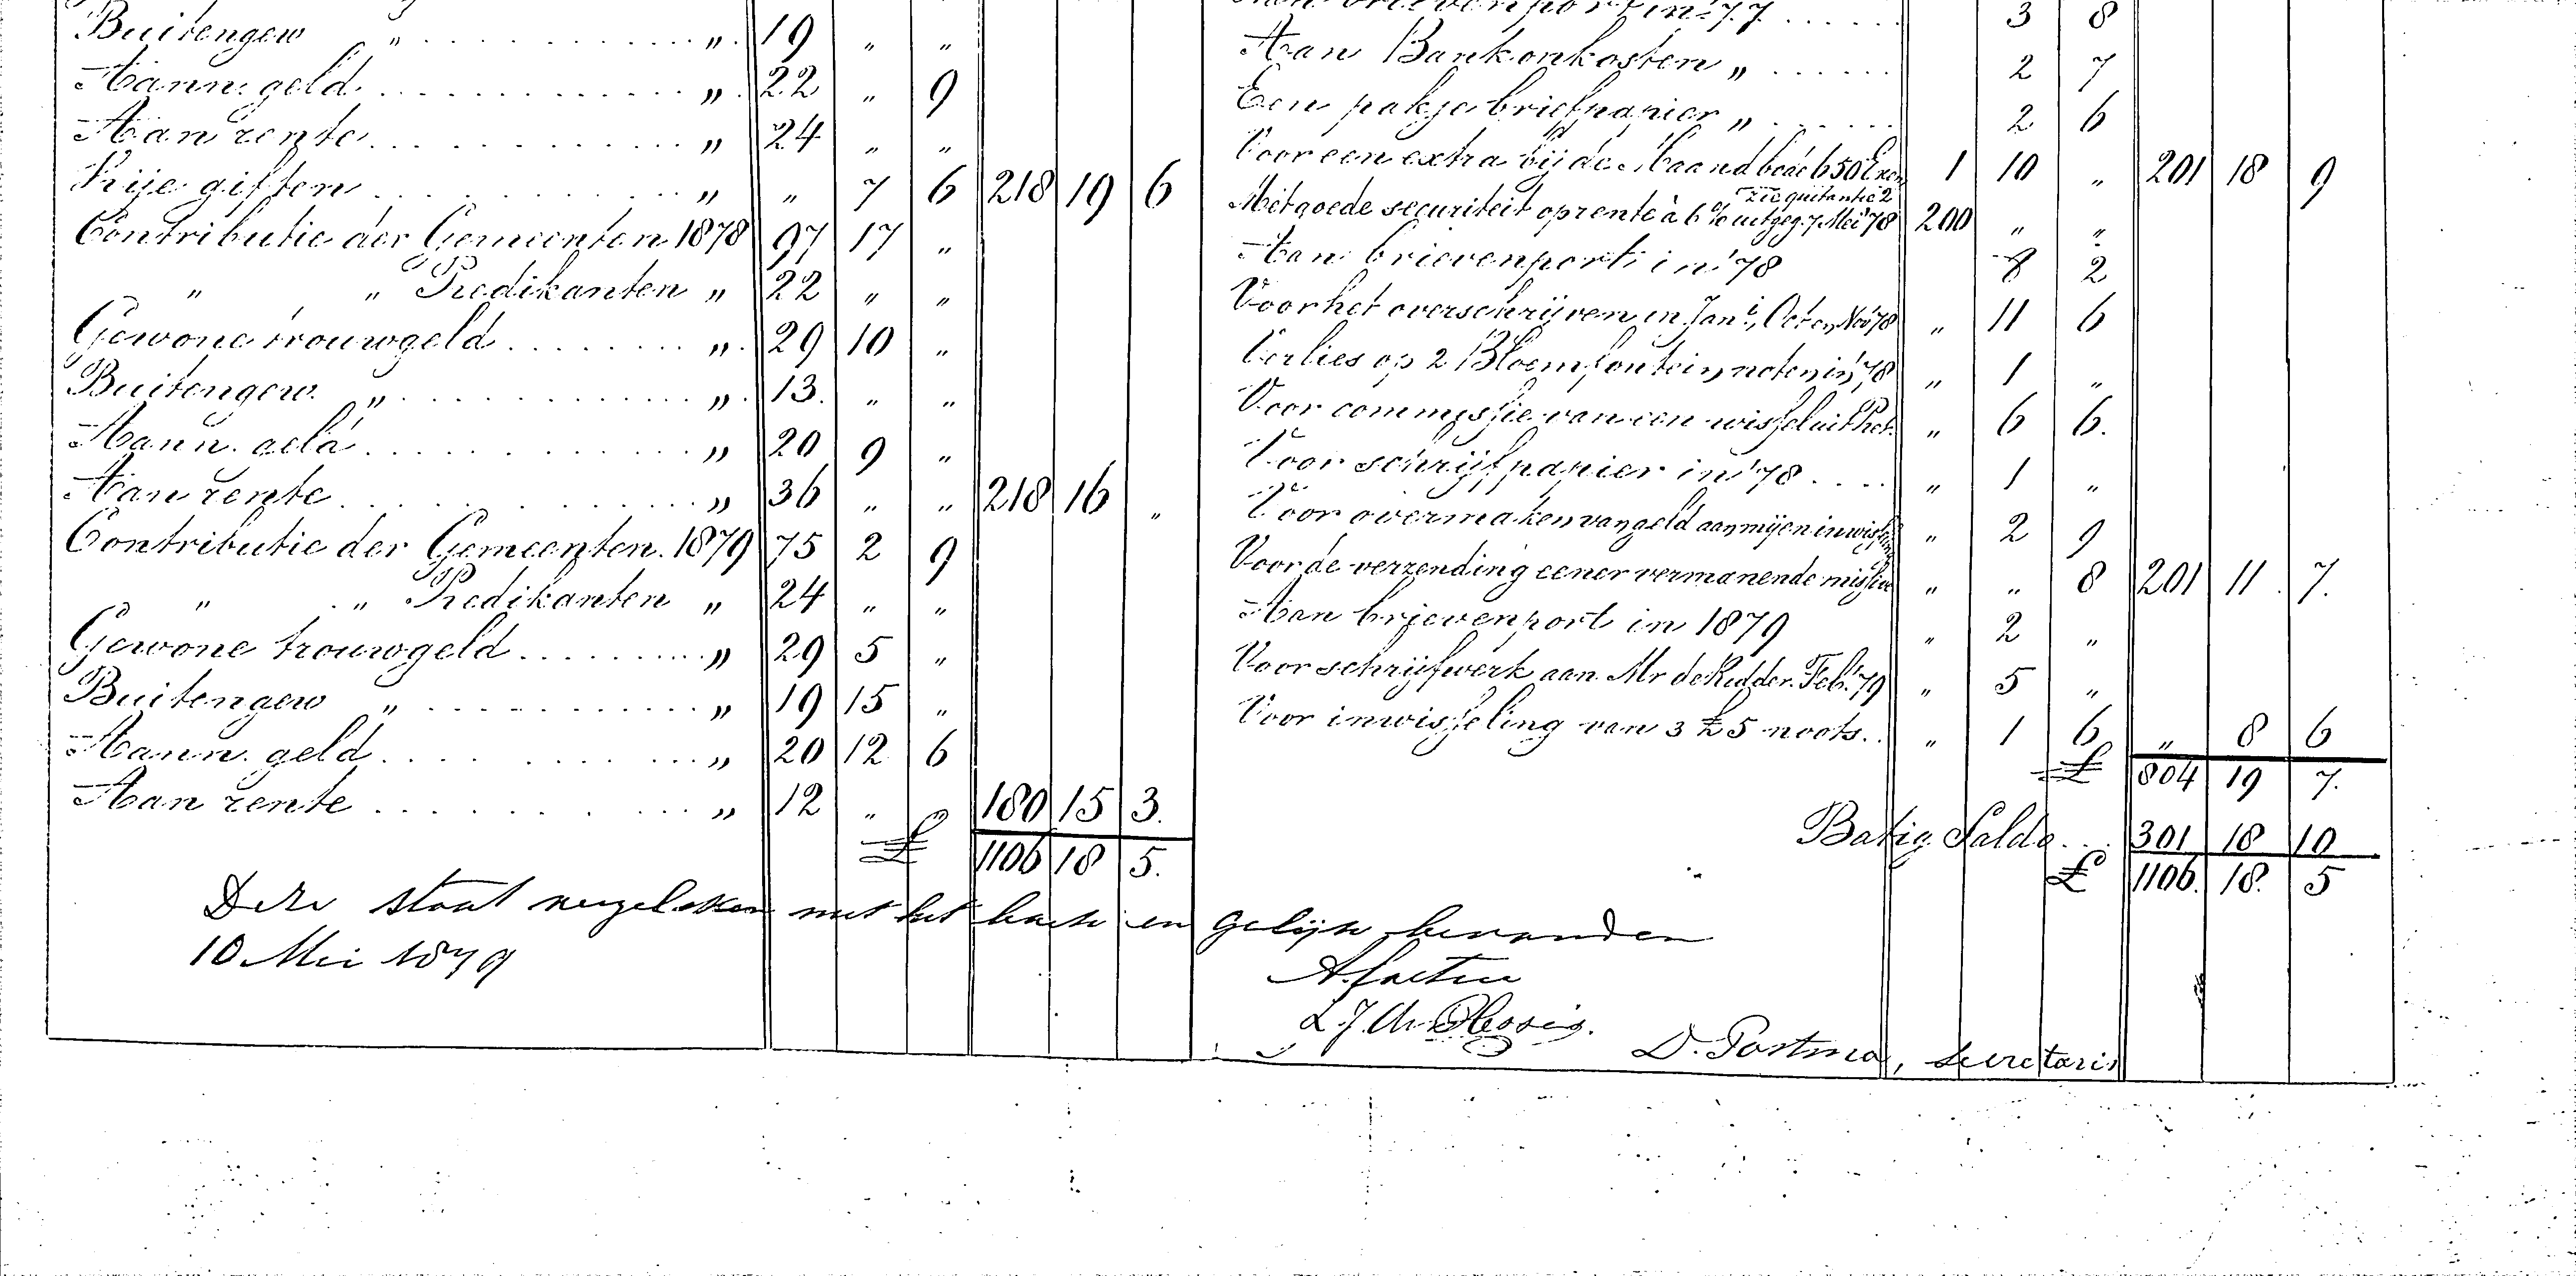 Buitengew " . . . . . . . . . . . . " 19 " "
Aann. geld . . . . . . . . . . . . " 22 " 9
Aan rente . . . . . . . . . . . . " 24 " "
Vrije giften . . . . . . . . . . . . " " 7 6 218 19 6
Contributie der Gemeenten 1878 97 17 "
" " Predikanten " 22 " "
Gewone trouwgeld . . . . . . . . " 29 10 "
Buitengew. " . . . . . . . . . . . . " 13. " "
Aann. geld . . . . . . . . . . . . " 20 9 "
Aan rente . . . . . . . . . . . . " 36 " " 218 16 "
Contributie der Gemeenten. 1879 75 2 9
" " Predikanten " 24 " "
Gewone trouwgeld . . . . . . . . " 29 5 "
Buitengew " . . . . . . . . . . . . " 19 15 "
Aann. geld . . . . . . . . . . . . " 20 12 6
Aan rente . . . . . . . . . . . . " 12 " " 180 15 3.
£ 1106 18 5.
Aan brievenport in '77 . . . . . . 3 8
Aan Bankonkosten " . . . . . . 2 7
Een pakje briefpapier " . . . . . . 2 6
Voor een extra bij de Maandbode 650 Exen 1 10 " 201 18 9
zie quitantie 2
Met goede securiteit op rente à 6% uitgeg. 7 Mei '78 200 " "
Aan brievenport in '78 8 2
Voor het overschrijven in Jan., Oct en Nov '78 " 11 6
Verlies op 2 Bloemfontein noten in '78 " 1 "
Voor commissie van een wissel uit " 6 6.
Voor schrijfpapier in '78 . . . . " 1 "
Voor overmaken van geld aan mij en inwissling " 2 9
Voor de verzending eener vermanende missive " " 8 201 11 7.
Aan brievenport in 1879 " 2 "
Voor schrijfwerk aan Mr de Ridder. Feb. '79 " 5 "
Voor inwisseling van 3 £5 noots. . " 1 6 " 8 6
£ 804 19 7.
Batig Saldo . . 301 18 10
£ 1106. 18. 5
Deze staat vergeleken met het boek en gelijk bevonden
10 Mei 1879
L. J. du Plessis.
D. Postma, Secretaris